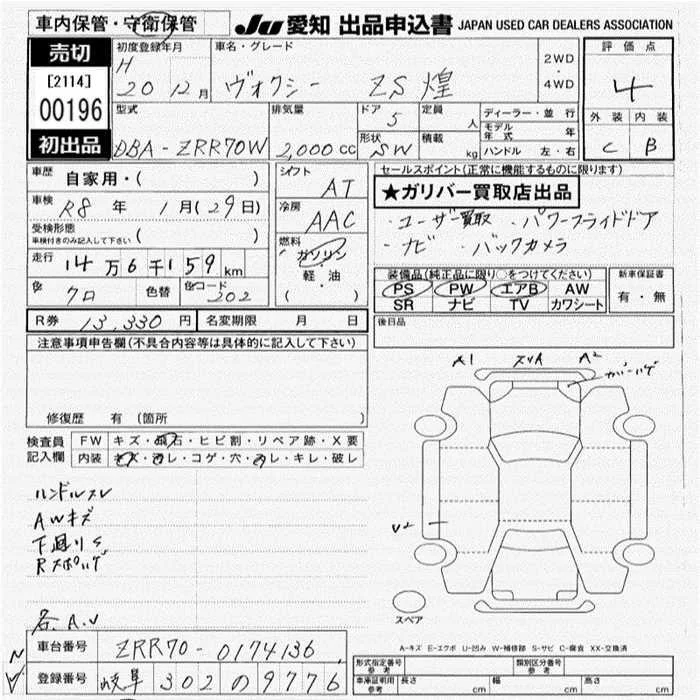 車内保管・守衛保管
JU 愛知 出品申込書 JAPAN USED CAR DEALERS ASSOCIATION
売切
[2114]
00196
初出品
初度登録年月
H 20 12月
車名・グレード
ヴォクシー ZS 煌
2WD
・
4WD
評価点
4
外装 内装
C B
型式
DBA-ZRR70W
排気量
2,000 cc
ドア 5
形状 SW
定員 人
積載 kg
ディーラー・並行
モデル年式 年
ハンドル 左・右
車歴 自家用・( )
車検 R8年 1月(29日)
受検形態
車検付きのみ記入して下さい ( )
走行 14万6千159km
色 クロ 色替 色コード 202
シフト AT
冷房 AAC
燃料 ガソリン
軽・油
( )
セールスポイント(正常に機能するものに限ります)
★ガリバー買取店出品
・ユーザー買取 ・パワースライドドア
・ナビ ・バックカメラ
装備品(純正品に限り○をつけてください)
PS PW エアB AW
SR ナビ TV カワシート
新車保証書
有・無
後日品
R券 13,330円 名変期限 月 日
注意事項申告欄(不具合内容等は具体的に記入して下さい)
修復歴 有 (箇所 )
検査員記入欄
FW キズ・飛石・ヒビ割・リペア跡・X要
内装 キズ・汚レ・コゲ・穴・スレ・キレ・破レ
ハンドルスレ
AWキズ
下廻りS
各A.U
A1 A2
カバーハゲ
U2
スペア
A-キズ E-エクボ U-凹み W-補修跡 S-サビ C-腐食 XX-交換済
車台番号 ZRR70-0174136
登録番号 岐阜 302 の 9776
形式指定番号 参考
類別区分番号 参考
車庫証明用 参考 長さ cm 幅 cm 高さ cm